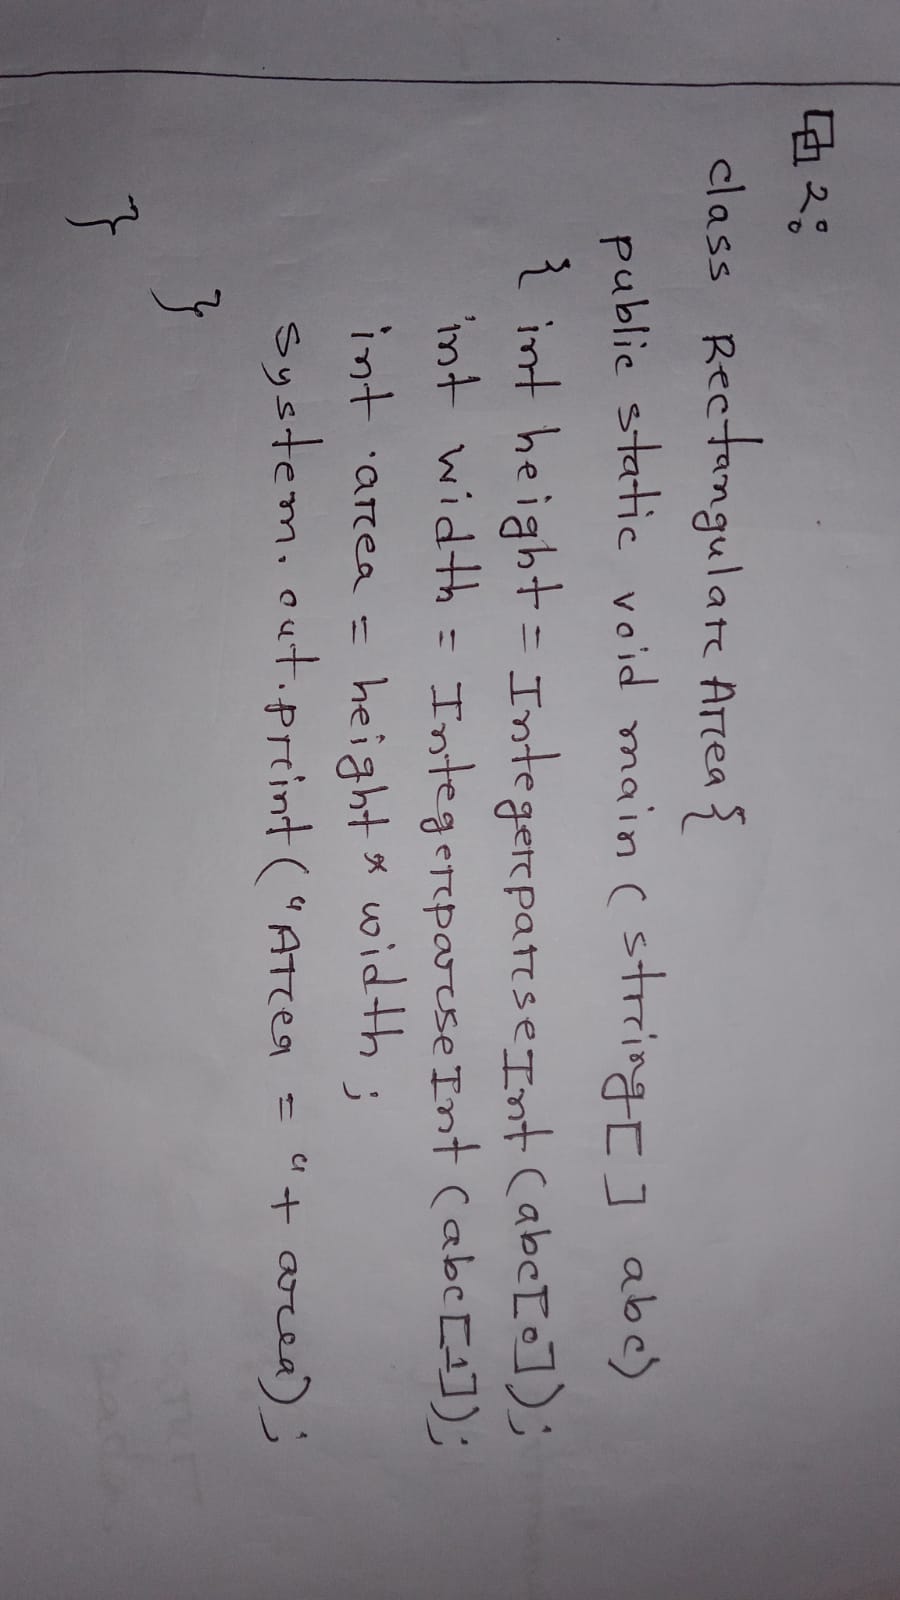 2:
class Rectangular Area {
public static void main (string[] abc)
{ int height = IntegerparseInt (abc[0]);
int width = IntegerparseInt (abc[1]);
int area = height * width;
system.out.print("Area = "+ area);
}
}